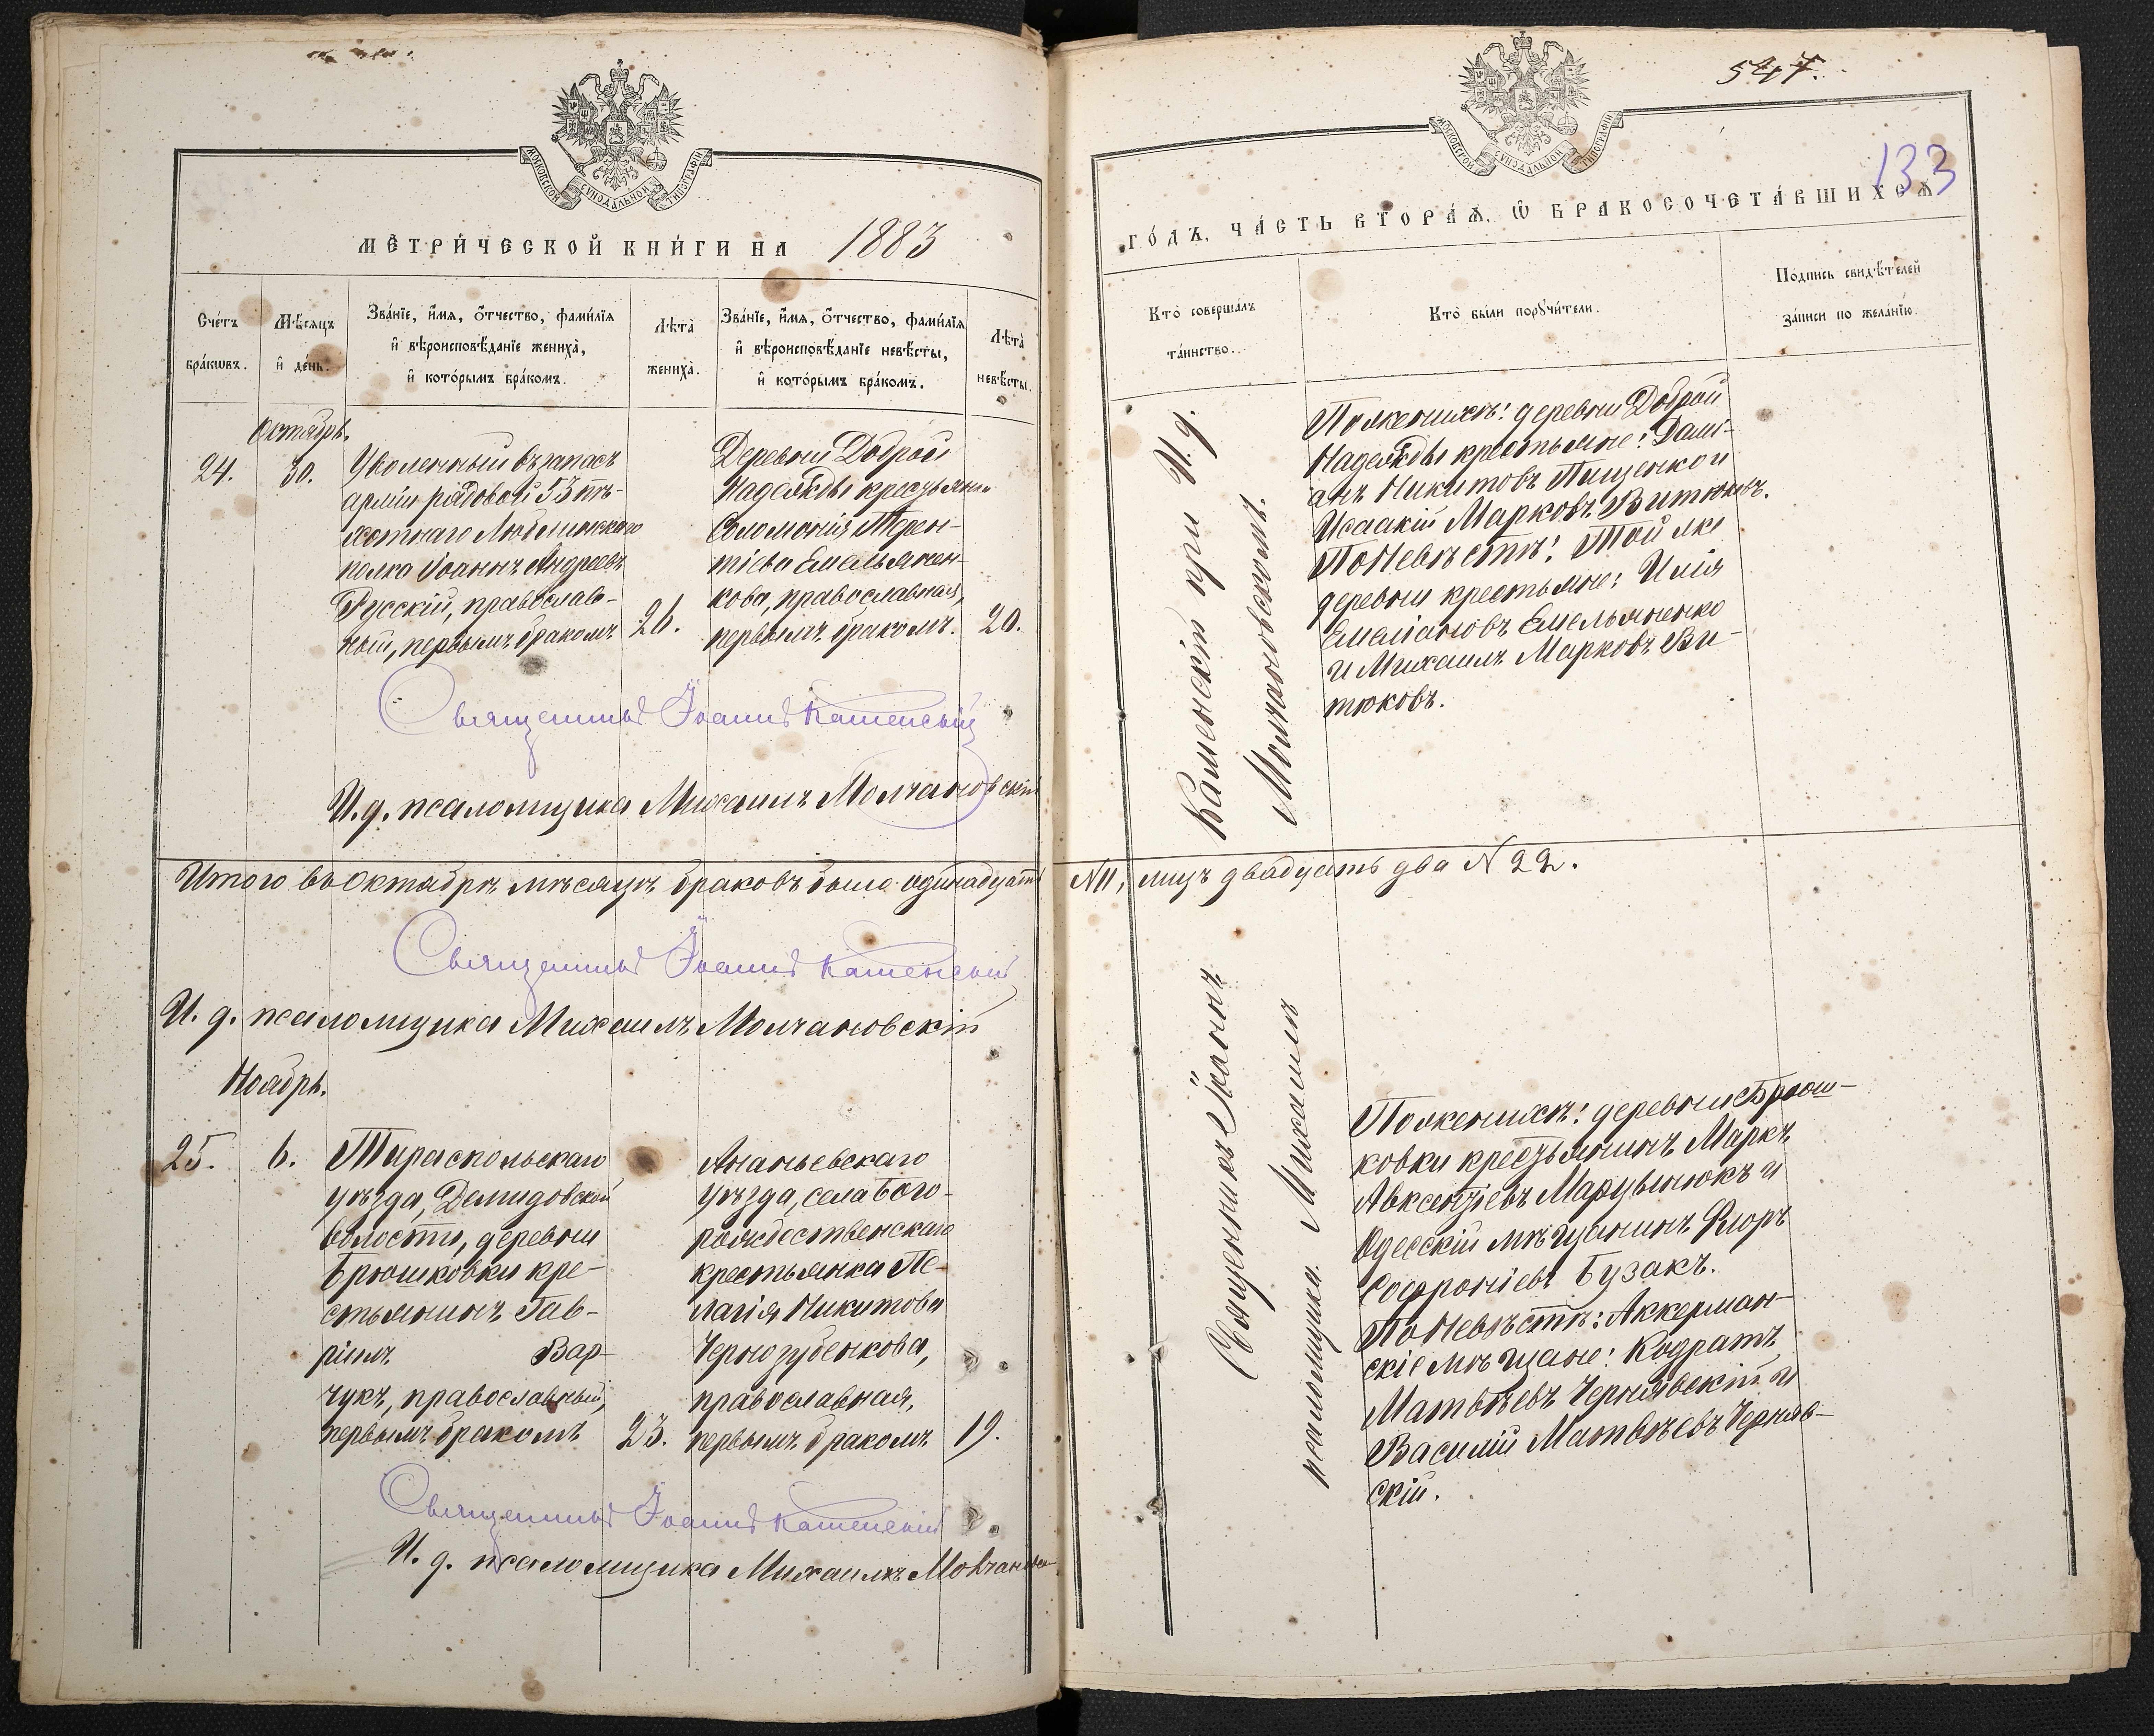 МОСКОВСКОЙ СѴНОДАЛЬНОЙ ТИПОГРАФІИ
МЕТРИ́ЧЕСКОЙ КНИ́ГИ НА 1883
Сче́тъ бра́кѡвъ.
Мѣ́сѧцъ и҆ де́нь.
Зва́нїе, и҆́мѧ, ѻ҆́тчество, фами́лїѧ
и҆ вѣроисповѣ́данїе жениха̀,
и҆ кото́рымъ бра́комъ.
Лѣта̀ жениха̀.
Зва́нїе, и҆́мѧ, ѻ҆́тчество, фами́лїѧ
и҆ вѣроисповѣ́данїе невѣ́сты,
и҆ кото́рымъ бра́комъ.
Лѣта̀ невѣ́сты.
Октябрь.
24.
30.
Уволенный въ запасъ
арміи рядовой 53 пѣ-
хотнаго Люблинскаго
полка Іоаннъ Андреевъ
Русскій, православ-
ный, первымъ бракомъ
26.
Деревни Доброй
Надежды крестьянка
Соломонія Терен-
тіева Емельянен-
кова, православная,
первымъ бракомъ.
20.
Священникъ Іоаннъ Каменскій
И. д. псаломщика Михаилъ Молчановскій
Итого въ Октябрѣ мѣсяцѣ браковъ было одинадцать
Священникъ Іоаннъ Каменскій
И. д. псаломщика Михаилъ Молчановскій
Ноябрь.
25.
6.
Тираспольскаго
уѣзда, Демидовской
волости, деревни
Брюшковки кре-
стьянинъ Гав-
ріилъ Вар-
чукъ, православный,
первымъ бракомъ
23.
Ананьевскаго
уѣзда, села Бого-
рождественскаго
крестьянка Пе-
лагія Никитова
Чернозубенкова,
православная,
первымъ бракомъ.
19.
Священникъ Іоаннъ Каменскій
И. д. псаломщика Михаилъ
547.
МОСКОВСКОЙ СѴНОДАЛЬНОЙ ТИПОГРАФІИ
133
ГО́ДЪ, ЧА́СТЬ ВТОРА́Ѧ, Ѽ БРАКОСОЧЕТА́ВШИХСѦ
Кто̀ соверша́лъ та́инство.
Кто̀ бы́ли порꙋчи́тели.
По́дпись свидѣ́телей
за́писи по жела́нїю.
Каменскій при И. д.
Молчановскомъ.
По женихѣ: деревни Доброй
Надежды крестьяне: Дамі-
анъ Никитовъ Пищенко и
Исаакій Марковъ Витюковъ.
По Невѣстѣ: Той же
деревни крестьяне: Илія
Емеліановъ Емельяненко
и Михаилъ Марковъ Ви-
тюковъ.
N 11, лицъ двадцать два N 22.
Священникъ Іоаннъ
псаломщика Михаилъ
По женихѣ: деревни Брюш-
ковки крестьянинъ Маркъ
Авксентіевъ Марцынюкъ и
Одесскій мѣщанинъ Флоръ
Софроніевъ Бузакъ.
По Невѣстѣ: Аккерман-
скіе мѣщане: Кодратъ
Матвѣевъ Чернявскій и
Василій Матвѣевъ Черняв-
скій.